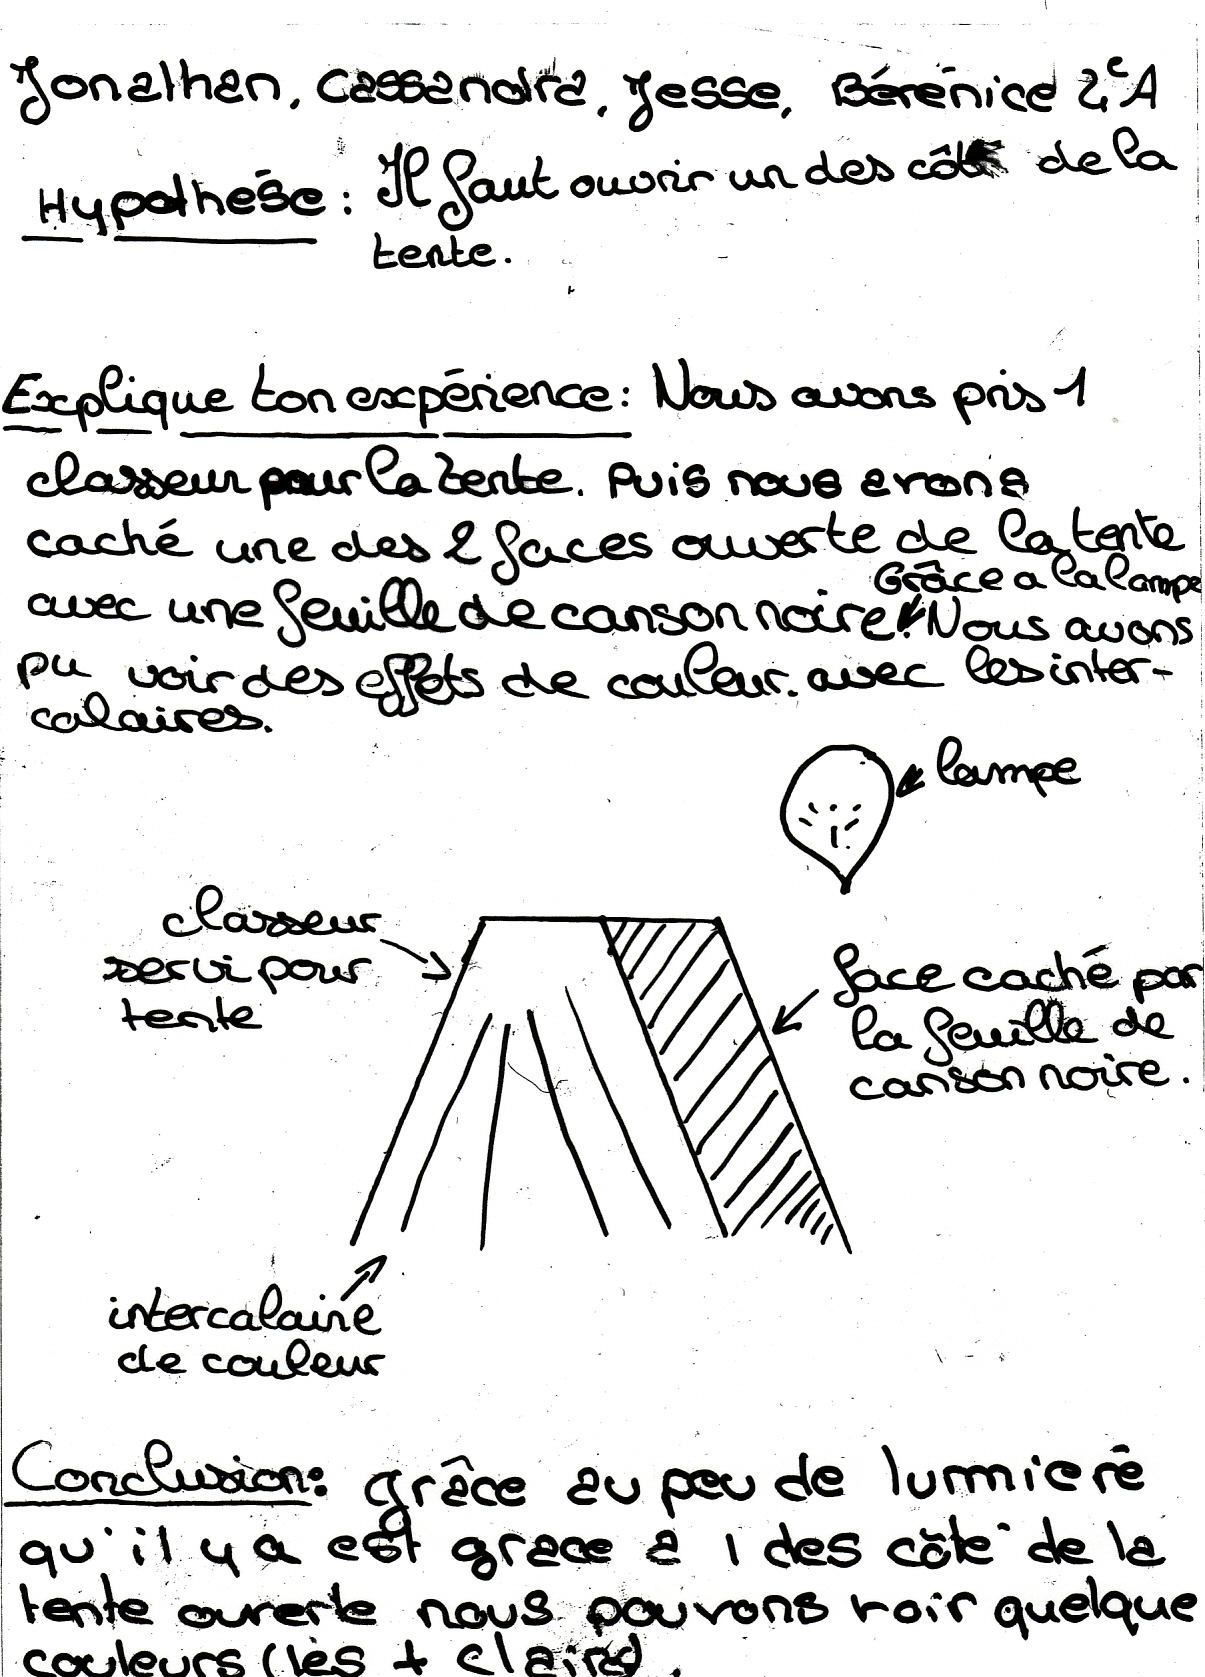 Jonathan, Cassandra, Jesse, Bérénice 2eA
Hypothèse : Il faut ouvrir un des côté de la
tente.
Explique ton expérience : Nous avons pris 1
classeur pour la tente. Puis nous avons
caché une des 2 faces ouverte de la tente
Grâce a la lampe
avec une feuille de canson noire. Nous avons
pu voir des effets de couleur. avec les inter-
calaires.
lampe
classeur
servi pour
tente
face caché par
la feuille de
canson noire.
intercalaire
de couleur
Conclusion: grâce au peu de lumière
qu'il y a est grace a 1 des côté de la
tente ouverte nous pouvons voir quelque
couleurs (les + clairs).